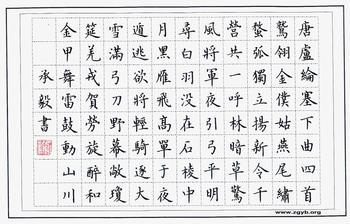 唐盧綸塞下曲四首
鷲翎金僕姑燕尾繡
蝥弧獨立揚新令千
營共一呼林暗草驚
風將軍夜引弓平明
尋白羽沒在石稜中
月黑雁飛高單于夜
遁逃欲將輕騎逐大
雪滿弓刀野幕敞瓊
筵羌戎賀勞旋醉和
金甲舞雷鼓動山川
承毅書
www.zgyb.org